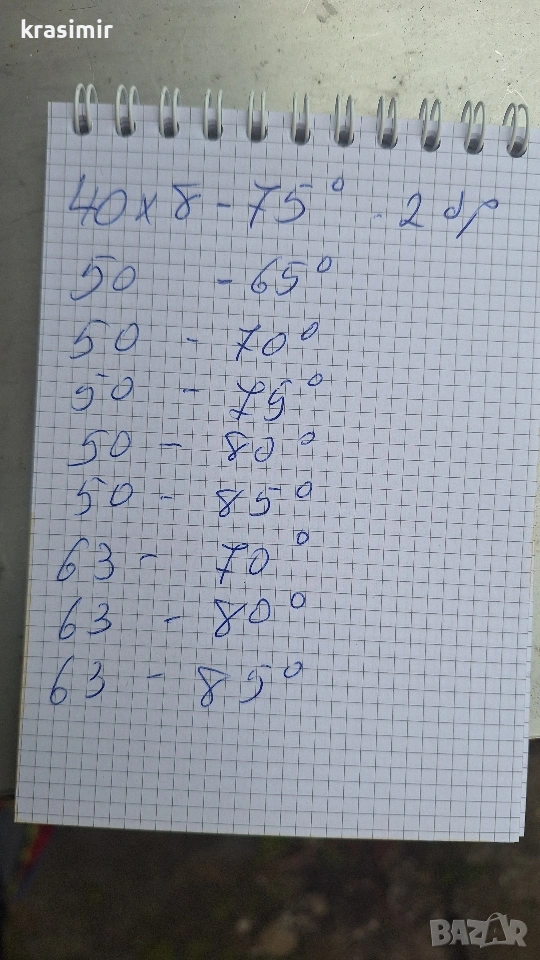 krasimir
40 x 8 - 75° - 2 бр
50 - 65°
50 - 70°
50 - 75°
50 - 80°
50 - 85°
63 - 70°
63 - 80°
63 - 85°
BAZAR